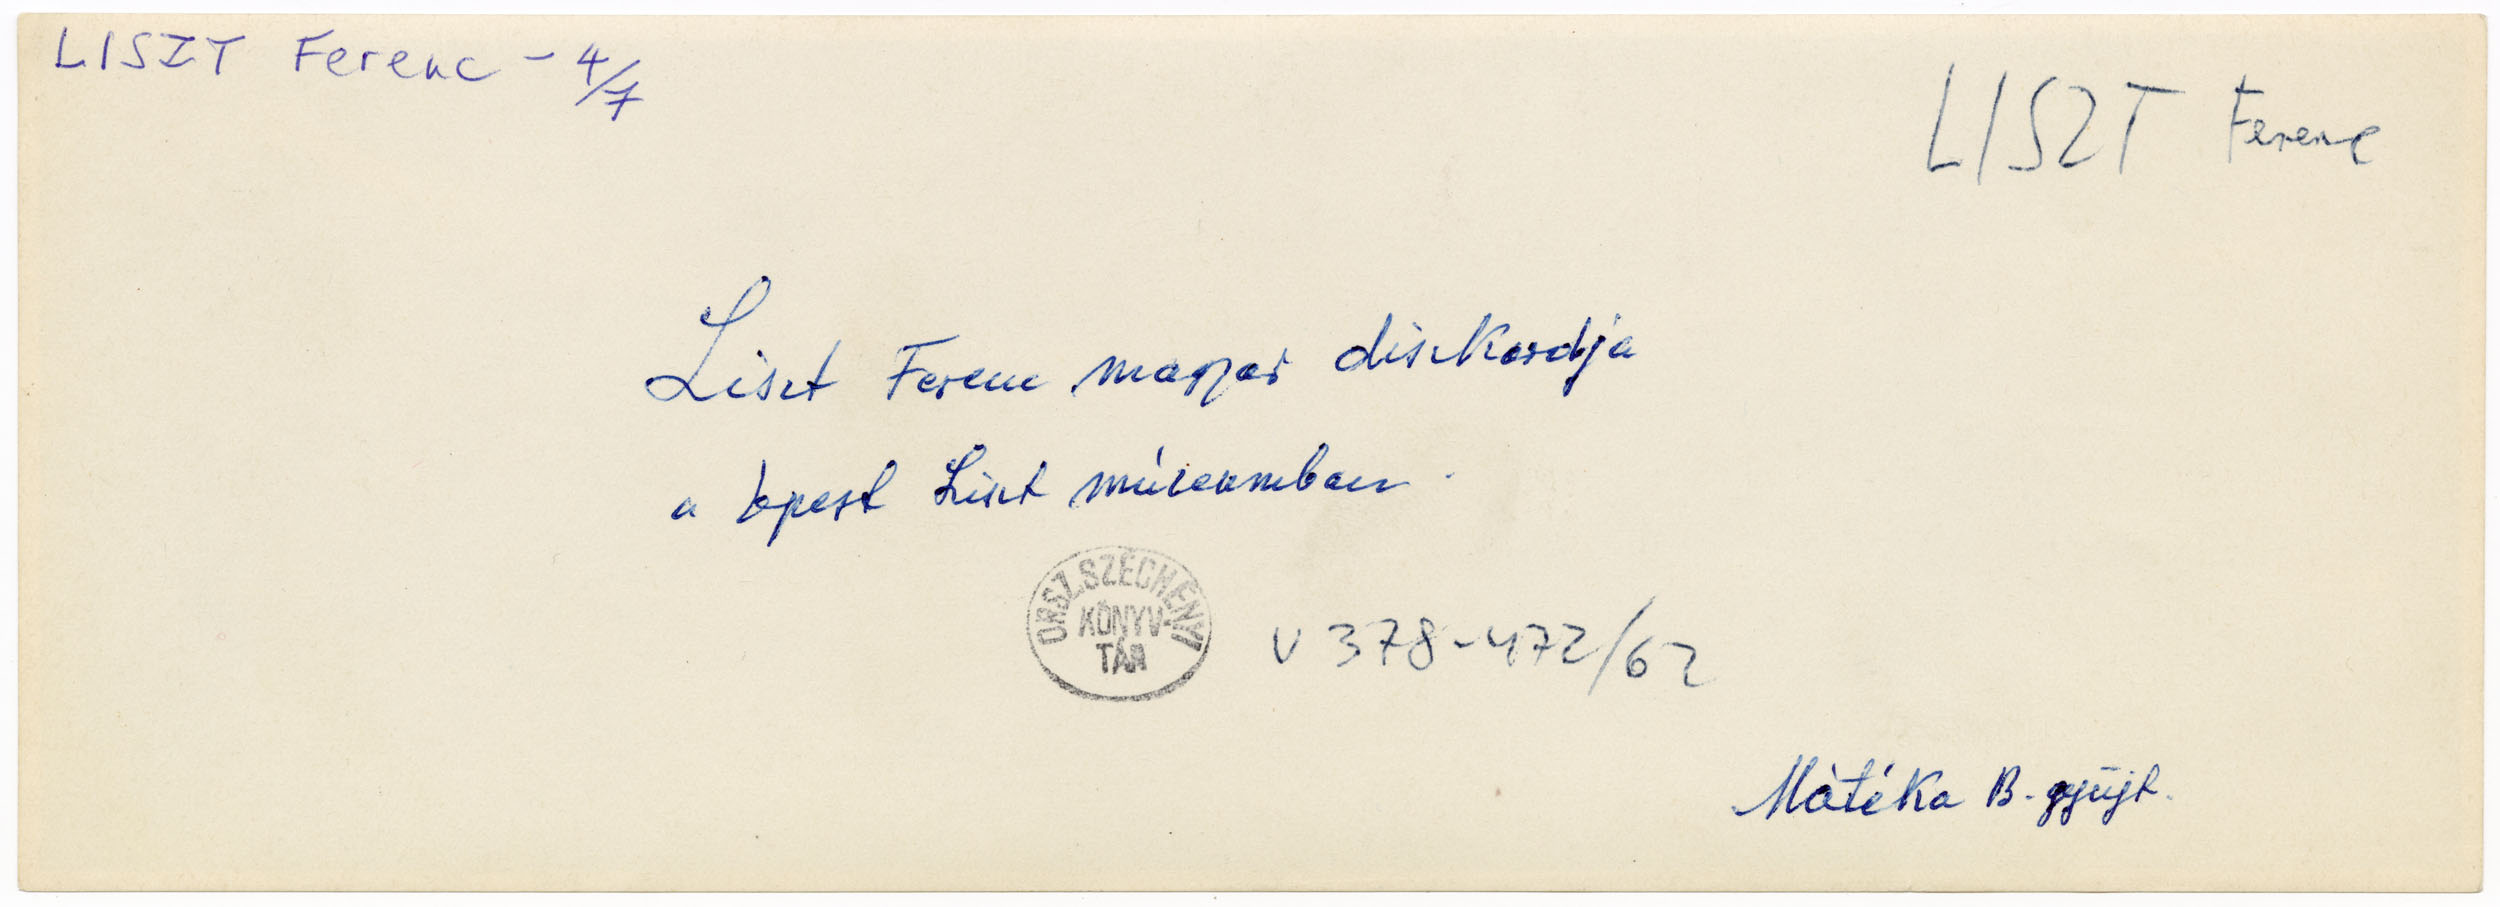 LISZT Ferenc - 4/7
LISZT Ferenc
Liszt Ferenc magyar diszkardja
a bpest Liszt múzeumban.
ORSZ. SZÉCHÉNYI
KÖNYV-
TÁR
V 378-472/62
Mátéka B. gyűjt.